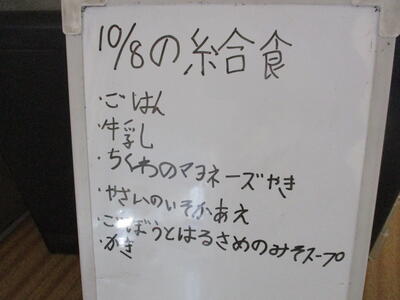 10/8の給食
・ごはん
・牛乳
・ちくわのマヨネーズやき
・やさいのいそかあえ
・ごぼうとはるさめのみそスープ
・かき